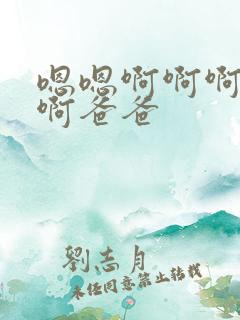 嗯嗯啊啊啊
啊爸爸
劉志月
未经同意禁止转载